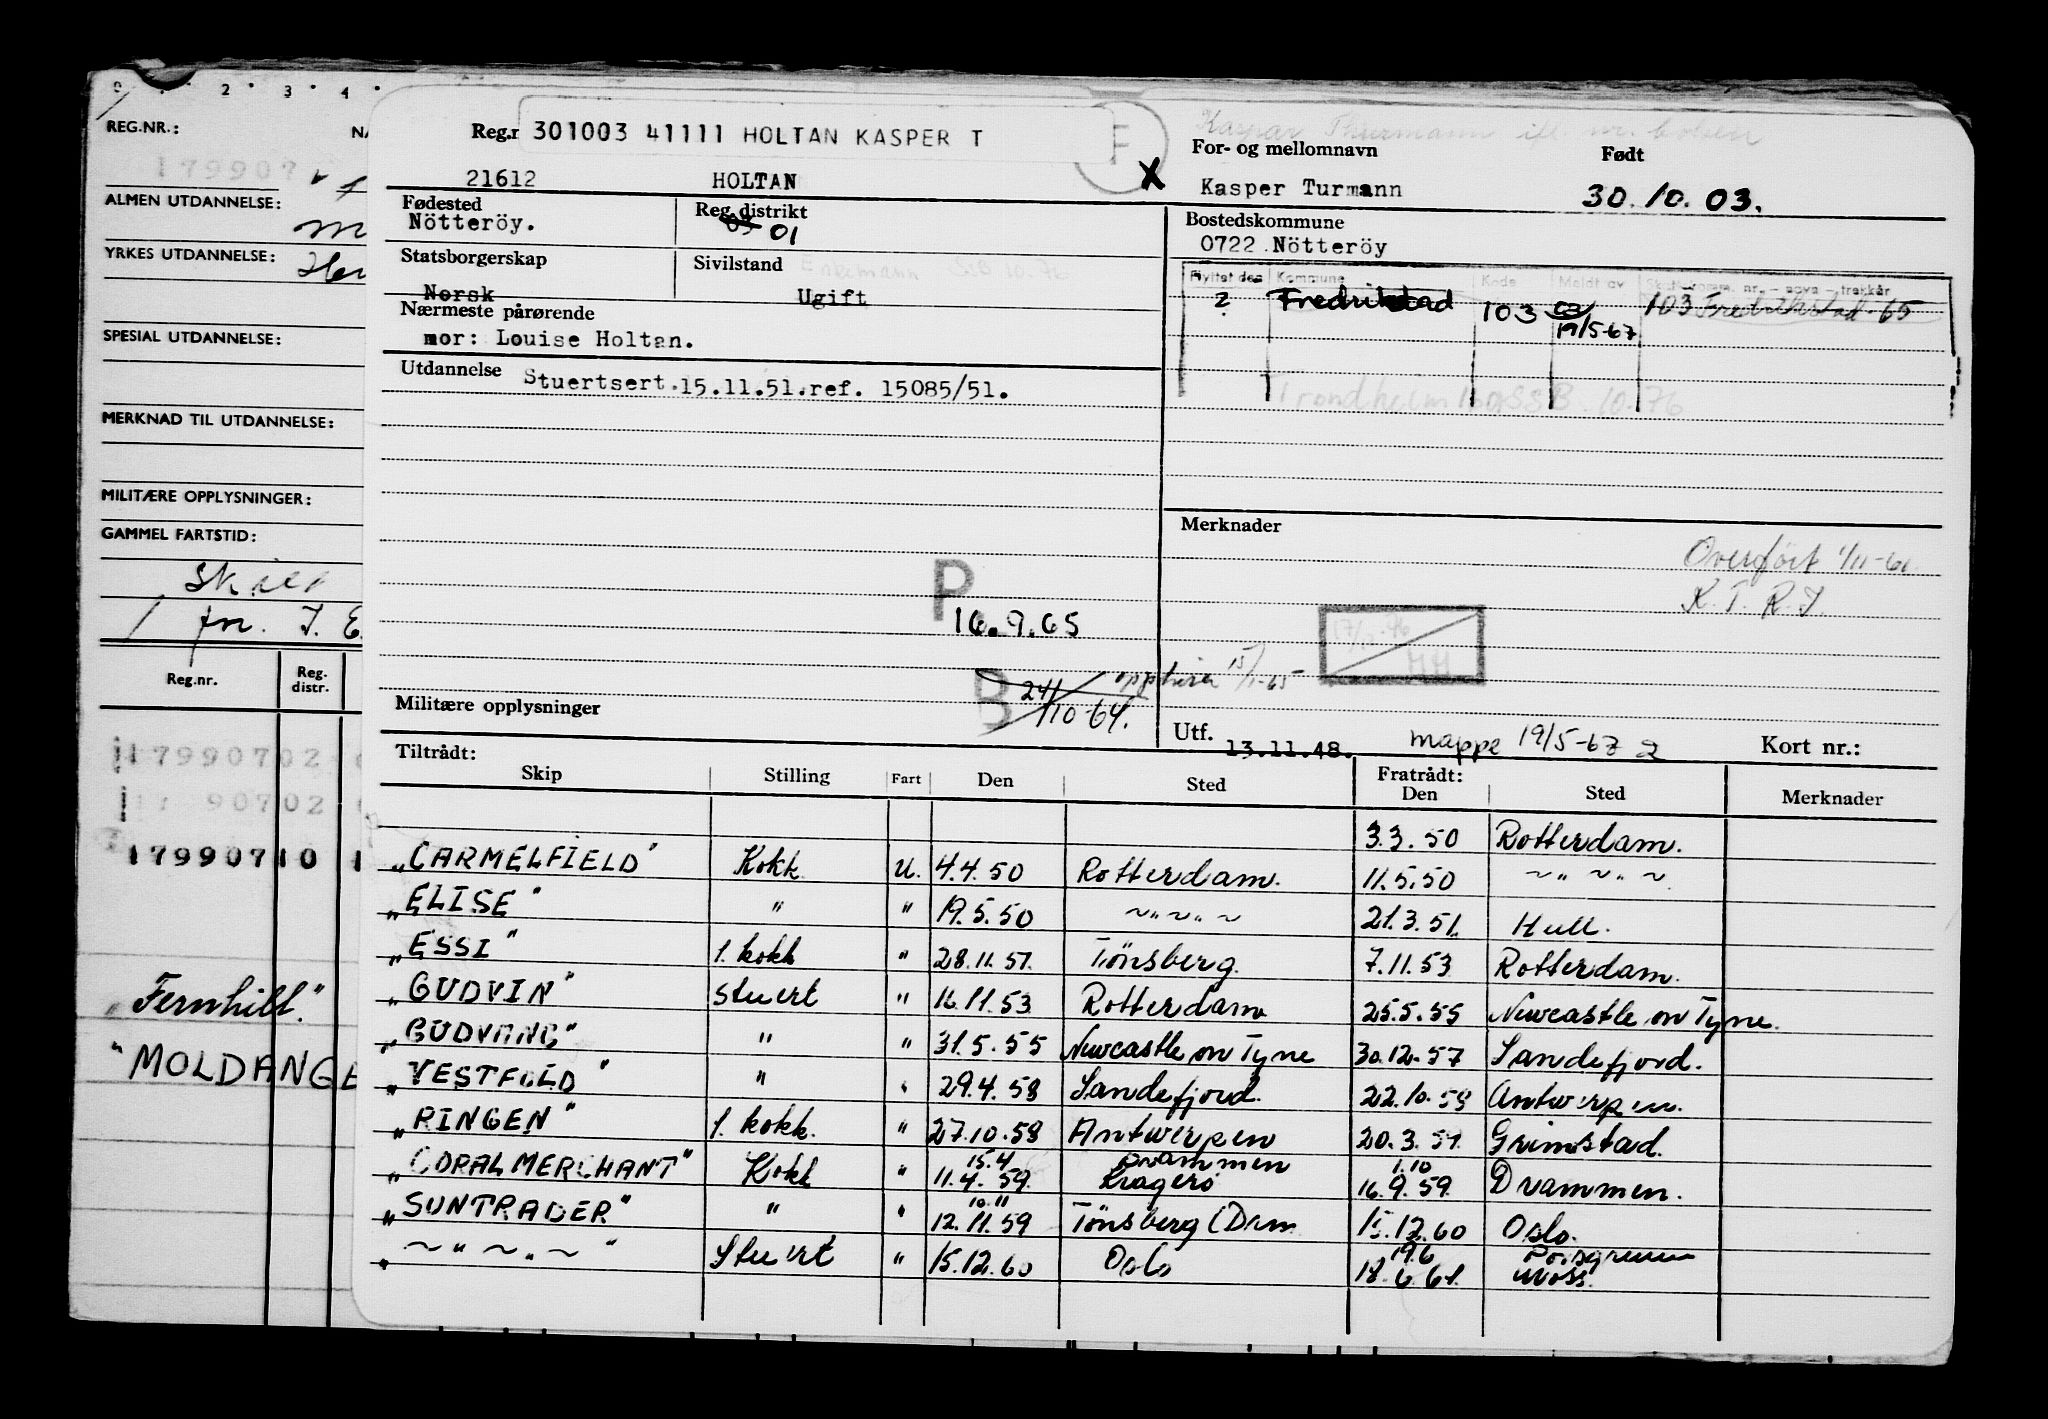 0 . 2 . 3 . 4 .
REG.NR.:
179907
ALMEN UTDANNELSE:
YRKES UTDANNELSE:
SPESIAL UTDANNELSE:
MERKNAD TIL UTDANNELSE:
MILITÆRE OPPLYSNINGER:
GAMMEL FARTSTID:
Reg.nr. Reg. distr.
17990702
90702
17990710 1
"Fernhill"
"MOLDANGE
Reg.r 301003 41111 HOLTAN KASPER T F
Kaspar Thurmann ifl. nr. boken
For- og mellomnavn Født
21612 HOLTAN X Kasper Turmann 30.10.03.
Fødested Reg. distrikt Bostedskommune
Nötteröy. 03 01 0722 Nötteröy
Statsborgerskap Sivilstand
Norsk Ugift
Flyttet den Kommune Kode Meldt av
? Fredrikstad 103 03 19/5-67 103 Fredrikstad-65
Nærmeste pårørende
mor: Louise Holtan.
Utdannelse Stuertsert.15.11.51.ref. 15085/51.
Trondheim SSB. 10.76
Merknader
Overført 1/11-61
K. T. R. J.
P. 16.9.65
B 24/10-64. 15/1-65
Militære opplysninger
Utf. 13.11.48. mappe 19/5-67 2 Kort nr.:
Tiltrådt: Fratrådt:
Skip Stilling Fart Den Sted Den Sted Merknader
3.3.50 Rotterdam.
"CARMELFIELD" Kokk U. 4.4.50 Rotterdam. 11.5.50 ~"~"~
"ELISE" " " 19.5.50 ~"~"~ 21.3.51. Hull.
"ESSI" 1. kokk " 28.11.51. Tönsberg. 7.11.53 Rotterdam.
"GUDVIN" Stuert " 16.11.53 Rotterdam 25.5.55 Newcastle on Tyne.
"GUDVANG" " " 31.5.55 Newcastle on Tyne 30.12.57 Sandefjord.
"VESTFOLD" " " 29.4.58 Sandefjord. 22.10.58 Antwerpen.
"RINGEN" 1. kokk. " 27.10.58 Antwerpen 20.3.59. Grimstad.
15.4 Drammen 1.10
"CORAL MERCHANT" Kokk " 11.4.59. Kragerö 16.9.59. Drammen.
10.11
"SUNTRADER" " " 12.11.59 Tönsberg (Dram 15.12.60 Oslo.
19.6 Porsgrunn
" ~"~"~ " Stuert " 15.12.60 Oslo 18.6.61. Moss.